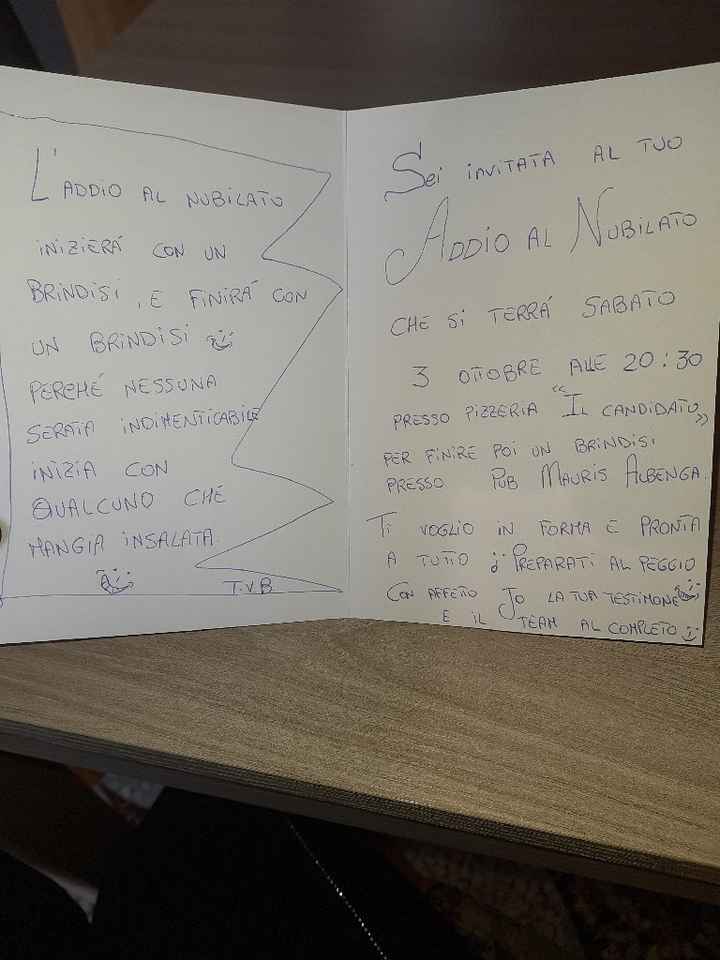 L'ADDIO AL NUBILATO
INIZIERÁ CON UN
BRINDISI, E FINIRÁ CON
UN BRINDISI
PERCHÉ NESSUNA
SERATA INDIMENTICABILE
INIZIA CON
QUALCUNO CHE
MANGIA INSALATA
T.V.B
SEI INVITATA AL TUO
ADDIO AL NUBILATO
CHE SI TERRÁ SABATO
3 OTTOBRE ALLE 20:30
PRESSO PIZZERIA "IL CANDIDATO"
PER FINIRE POI UN BRINDISI
PRESSO PUB MAURIS ALBENGA.
TI VOGLIO IN FORMA E PRONTA
A TUTTO ¿ PREPARATI AL PEGGIO
CON AFFETTO JO LA TUA TESTIMONE
E IL TEAM AL COMPLETO